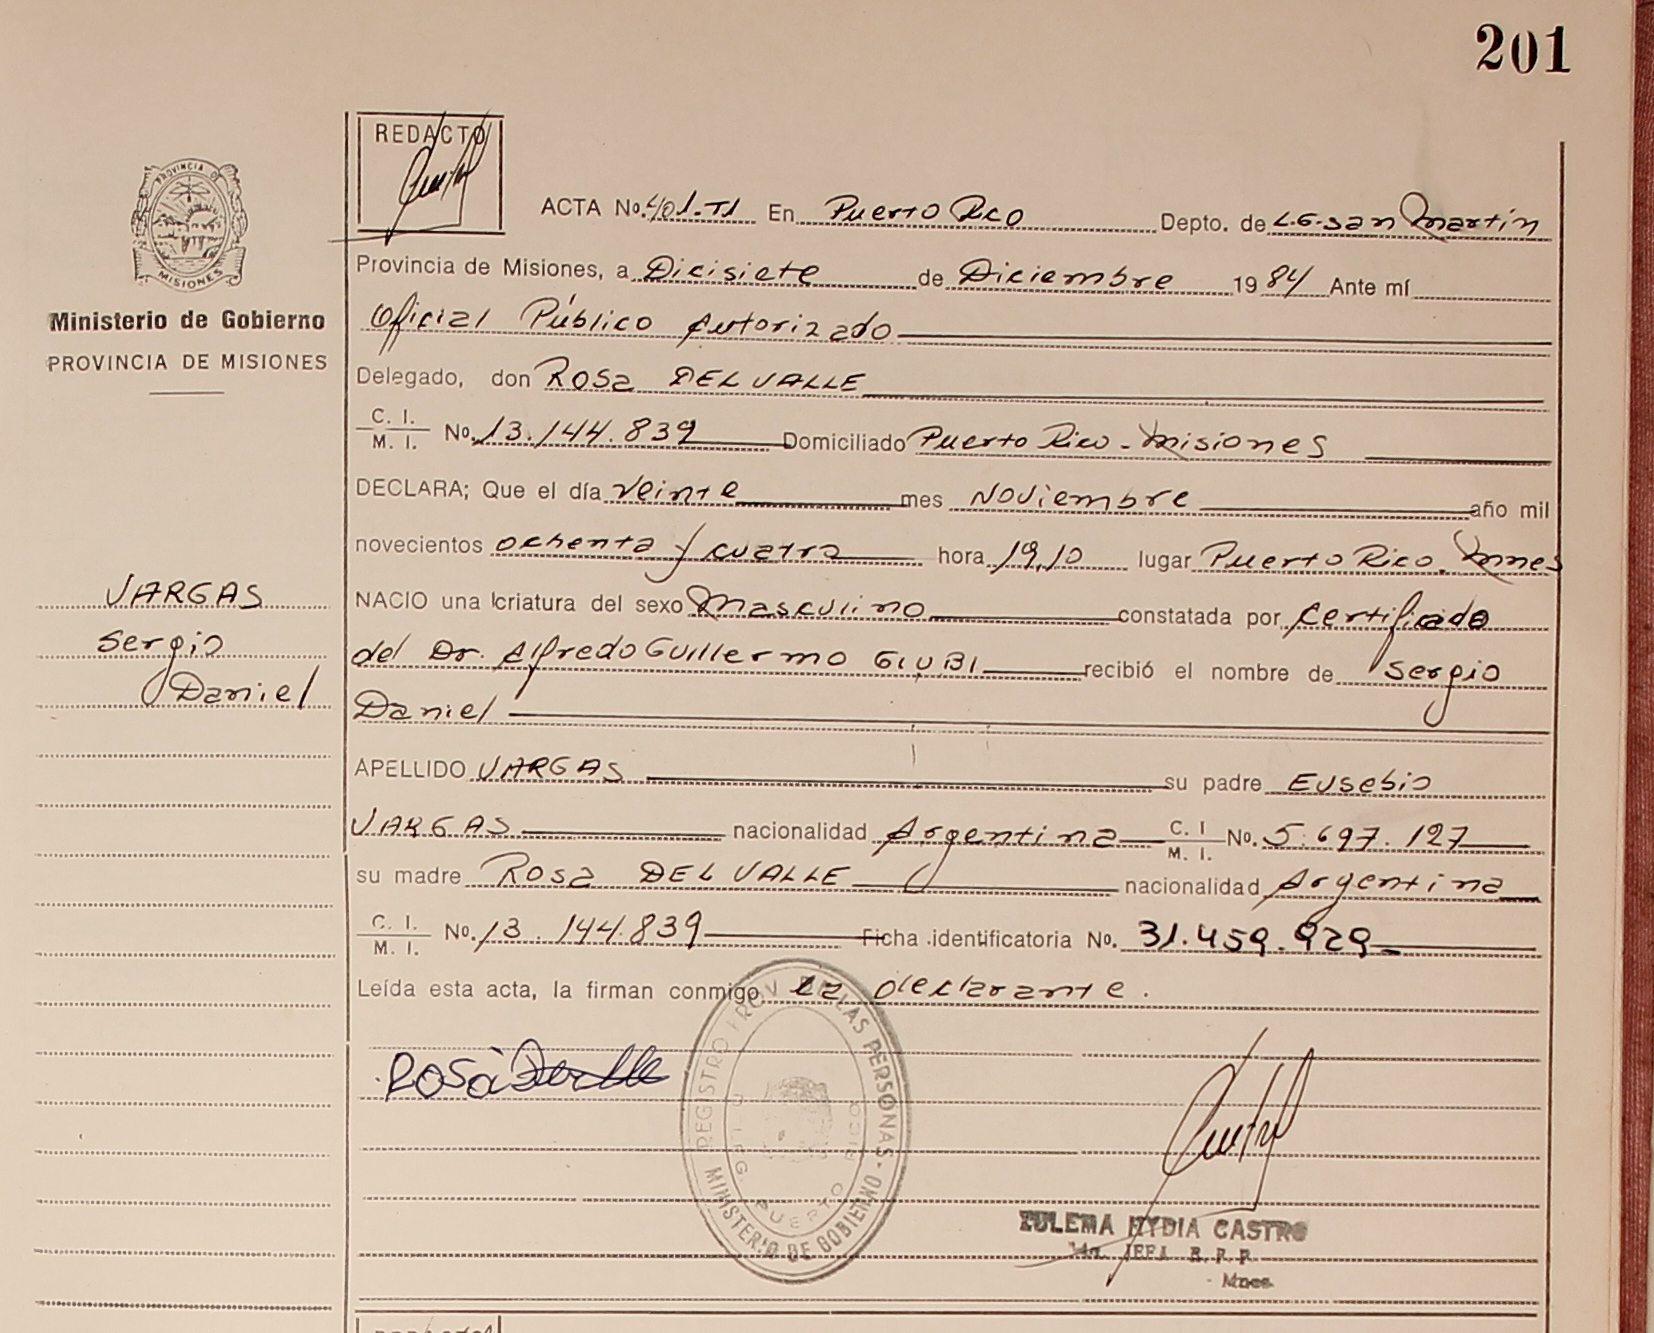 201
REDACTO
PROVINCIA DE
MISIONES
ACTA No. 401-T1 En Puerto Rico Depto. de L.G. San Martín
Provincia de Misiones, a Dicisiete de Diciembre 1984 Ante mí
Ministerio de Gobierno
PROVINCIA DE MISIONES
Oficial Público Autorizado
Delegado, don Rosa DEL VALLE
C. I.
M. I. No. 13.144.839 Domiciliado Puerto Rico - Misiones
DECLARA; Que el día veinte mes Noviembre año mil
novecientos ochenta y cuatro hora 19,10 lugar Puerto Rico. Mnes
VARGAS
Sergio
Daniel
NACIO una criatura del sexo Masculino constatada por certificado
del Dr. Alfredo Guillermo GIUBI recibió el nombre de Sergio
Daniel
APELLIDO VARGAS su padre Eusebio
VARGAS nacionalidad Argentina C. I. M. I. No. 5.697.127
su madre Rosa DEL VALLE nacionalidad Argentina
C. I.
M. I. No. 13.144.839 Ficha identificatoria No. 31.459.929
Leída esta acta, la firman conmigo la declarante.
Rosa Delvalle
REGISTRO PROV. DE LAS PERSONAS - MINISTERIO DE GOBIERNO
DELEG. PUERTO RICO
ZULEMA NYDIA CASTRO
JEFA R. P. P.
Mnes.